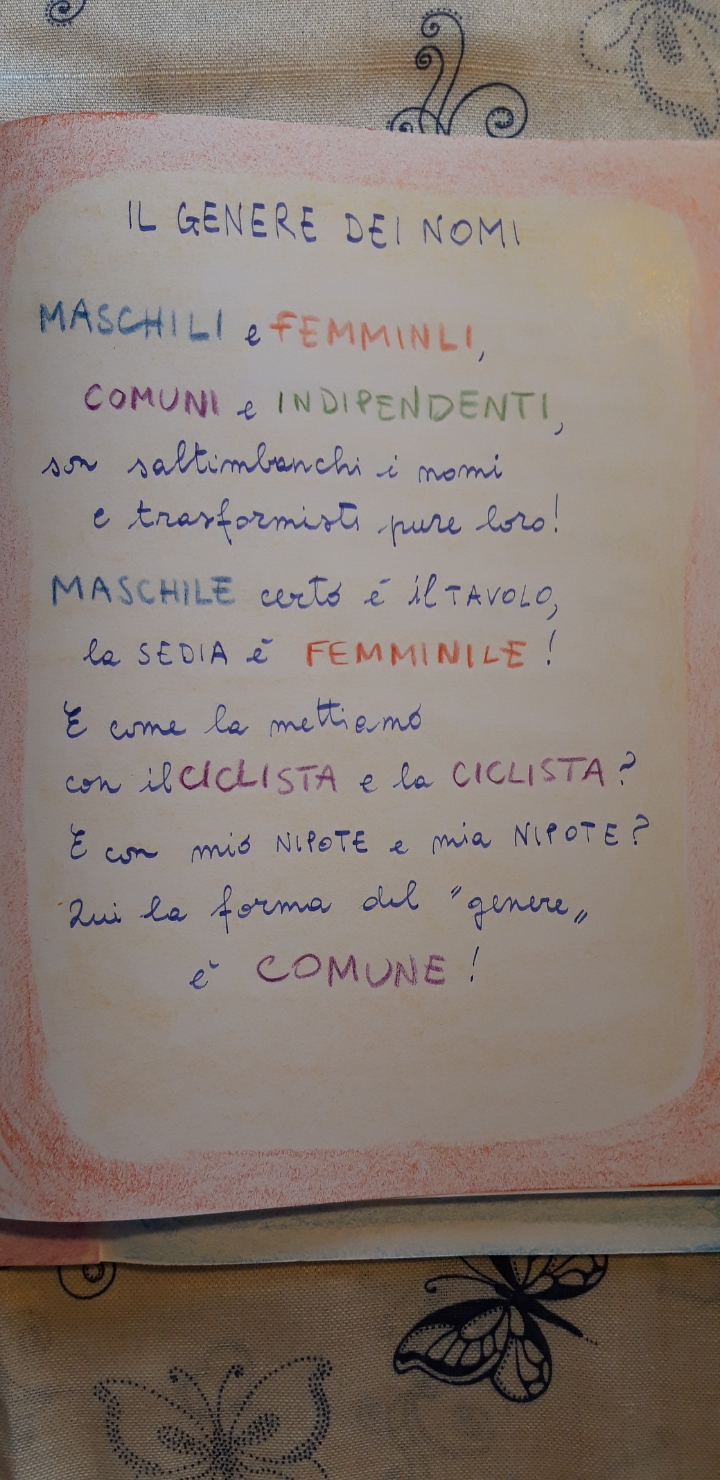 IL GENERE DEI NOMI
MASCHILI e FEMMINLI,
COMUNI e INDIPENDENTI,
son saltimbanchi i nomi
e trasformisti pure loro!
MASCHILE certo è il TAVOLO,
la SEDIA è FEMMINILE!
E come la mettiamo
con il CICLISTA e la CICLISTA?
E con mio NIPOTE e mia NIPOTE?
Qui la forma del "genere"
è COMUNE!